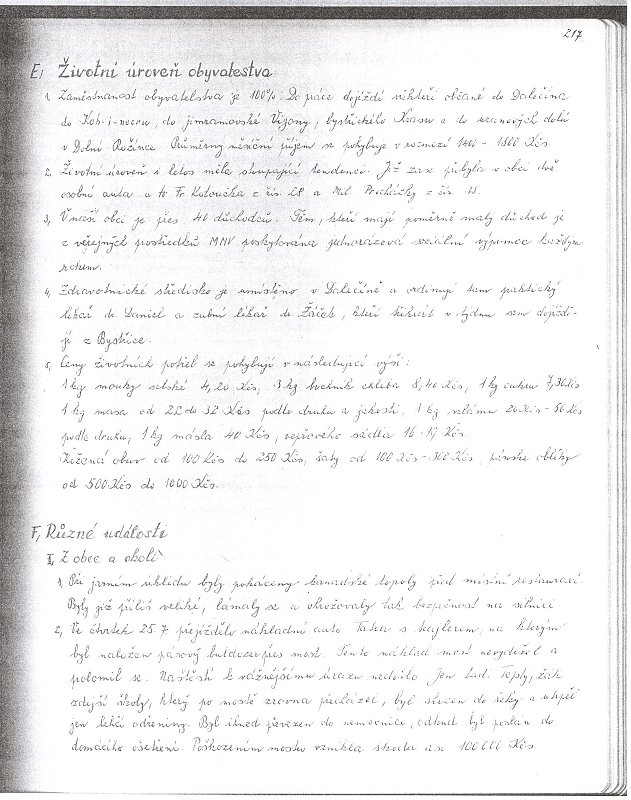 217
E, Životní úroveň obyvatelstva
1, Zaměstnanost obyvatelstva je 100%. Do práce dojíždí někteří občané do Dalečína
do Koh-i-nooru, do jimramovské Vigony, bystřického Krasu a do uranových dolů
v Dolní Rožínce. Průměrný měsíční příjem se pohybuje v rozmezí 1400 - 1800 Kčs.
2, Životní úroveň i letos měla stoupající tendenci. Již zase přibyla v obci dvě
osobní auta a to Fr. Kotoučka z čís. 28 a Mil. Procházky z čís. 13.
3, V naší obci je přes 40 důchodců. Těm, kteří mají poměrně malý důchod je
z veřejných prostředků MNV poskytována jednorázová sociální výpomoc každým
rokem.
4, Zdravotnické středisko je umístěno v Dalečíně a ordinují tam praktický
lékař dr. Daniel a zubní lékař dr. Žáček, kteří několikrát v týdnu sem dojíždě-
jí z Bystřice.
5, Ceny životních potřeb se pohybují v následující výši:
1 kg mouky selské 4,20 Kčs, 3 kg bochník chleba 8,40 Kčs, 1 kg cukru 7,36 Kčs
1 kg masa od 22 do 32 Kčs podle druhu a jakosti, 1 kg salámu 20 Kčs - 50 Kčs
podle druhu, 1 kg másla 40 Kčs, vepřového sádla 16 - 19 Kčs.
Kožená obuv od 100 Kčs do 250 Kčs, šaty od 100 Kčs - 300 Kčs, pánské obleky
od 500 Kčs do 1000 Kčs.
F, Různé události
I, Z obce a okolí
1, Při jarním úklidu byly pokáceny kanadské topoly před místní restaurací.
Byly již příliš veliké, lámaly se a ohrožovaly tak bezpečnost na silnici
2, Ve čtvrtek 25. 7 přejíždělo nákladní auto Tatra s hajlerem, na kterým
byl naložen pásový buldozer přes most. Tento náklad most nevydržel a
polomil se. Naštěstí k vážnějšímu úrazu nedošlo. Jen Lad. Teplý, žák
zdejší školy, který po mostě zrovna přecházel, byl stržen do řeky a utrpěl
jen lehčí odřeniny. Byl ihned převezen do nemocnice, odkud byl poslán do
domácího ošetření. Poškozením mostu vznikla škoda asi 100 000 Kčs.